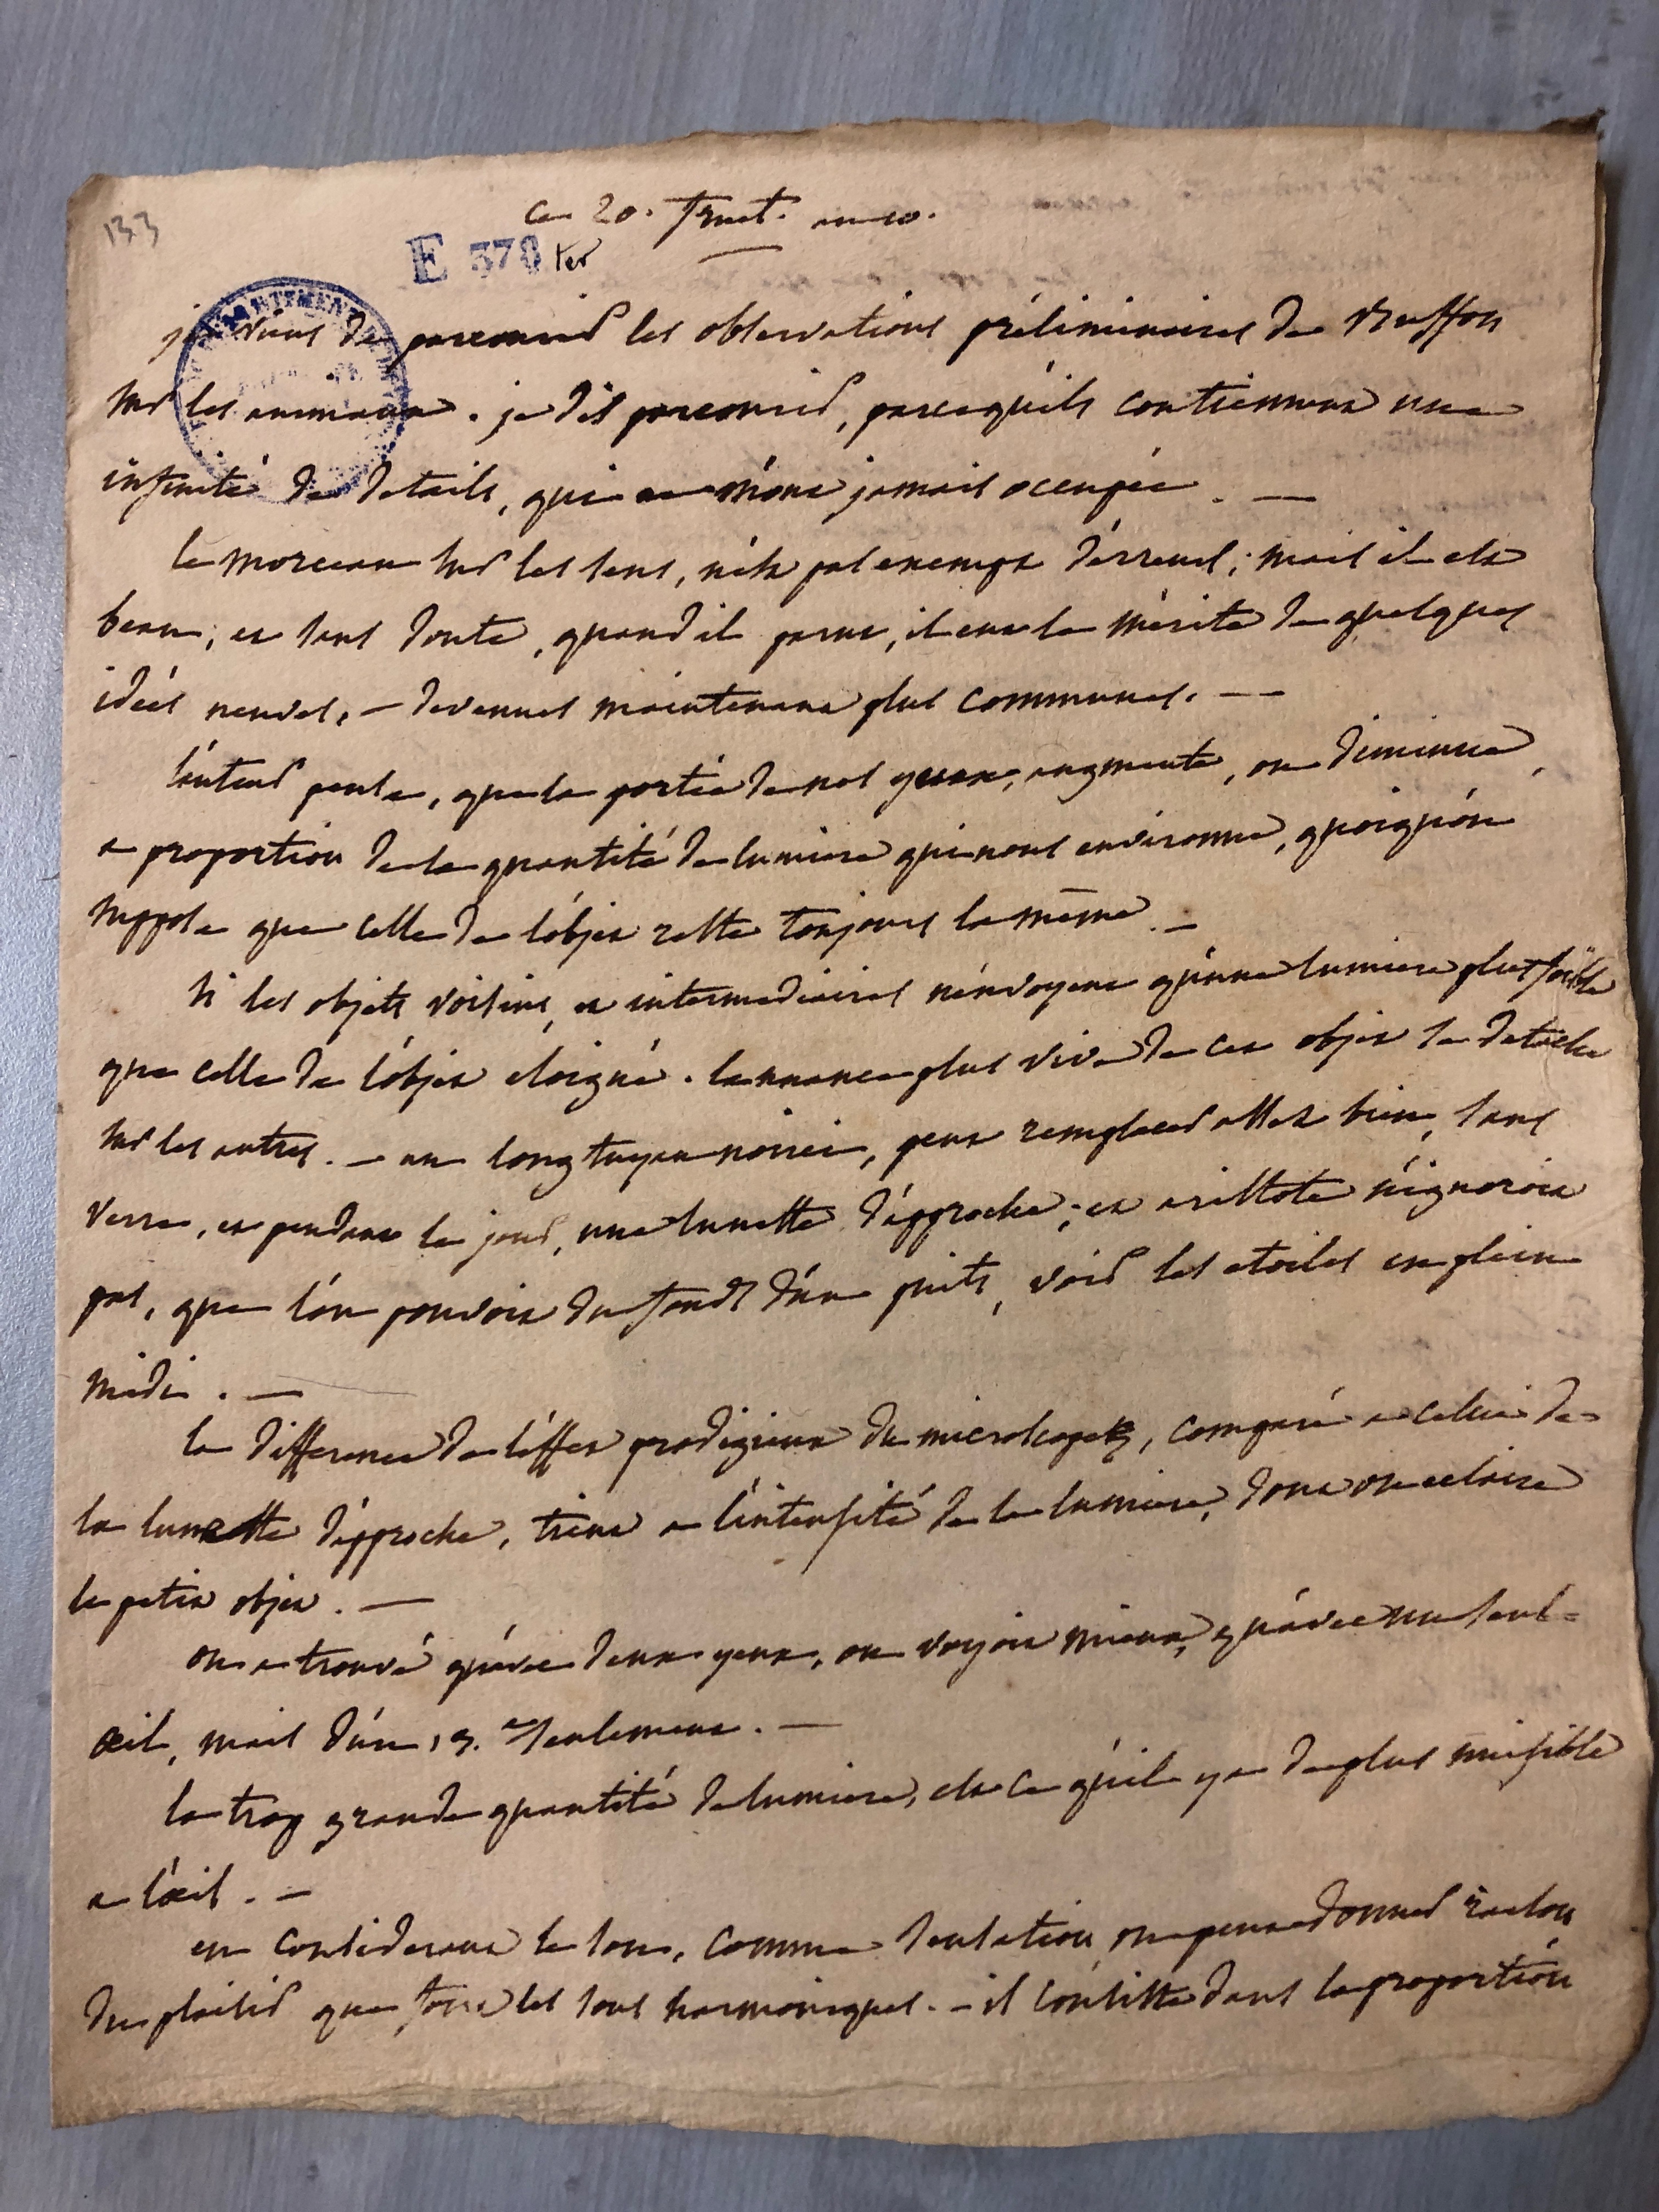 133
ce 20. fruct. an 10.
E 378 ter
je viens de parcourir les observations préliminaires de Buffon
sur les animaux. je dis parcourir, parcequ'ils contiennent une
infinité de details, qui ne m'ont jamais occupée. —
le morceau sur les sens, n'est pas exempt d'erreurs; mais il est
beau, et sans doute, quand il parut, il eut le mérite de quelques
idées neuves, — devenues maintenant plus communes. —
l'auteur pense, que la portée de nos yeux, augmente, ou diminue,
a proportion de la quantité de lumiere qui nous environne, quoiqu'on
suppose que celle de l'objet reste toujours la même. —
si les objets voisins, et intermediaires n'envoyent qu'une lumiere plus foible
que celle de l'objet eloigné. la nuance plus vive de cet objet se detache
sur les autres. — un long tuyau noirci, peut remplacer assez bien, sans
verre, et pendant le jour, une lunette d'approche; et aristote n'ignoroit
pas, que l'on pouvoit du fonds d'un puits, voir les etoiles en plein
midi. —
la difference de l'effet prodigieux du microscope, comparé a celui de
la lunette d'approche, tient a l'intensité de la lumiere, dont on eclaire
le petit objet. —
on a trouvé qu'avec deux yeux, on voyoit mieux, qu'avec un seul
œil, mais d'un 13.e seulement. —
la trop grande quantité de lumiere, est ce qu'il y a de plus nuisible
a l'œil. —
en considerant le son, comme sensation on peut donner raison
du plaisir que font les sons harmoniques. — il consiste dans la proportion